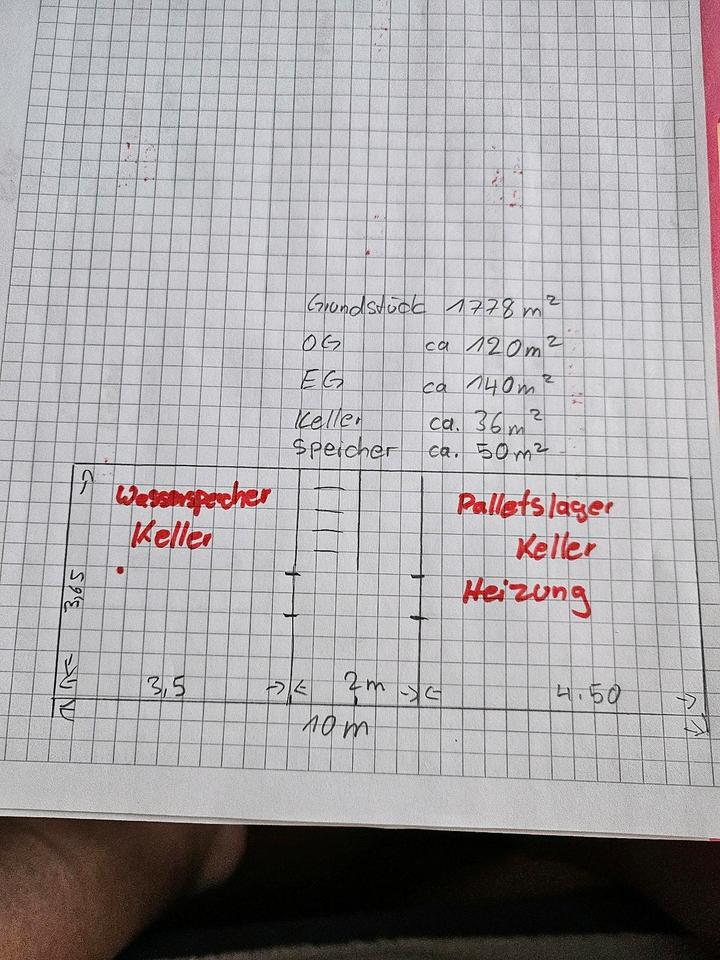 Grundstück 1778 m²
OG ca 120 m²
EG ca 140 m²
Keller ca. 36 m²
Speicher ca. 50 m²
Wasserspeicher
Keller
Palletslager
Keller
Heizung
3,65
3,5
2m
4.50
10 m